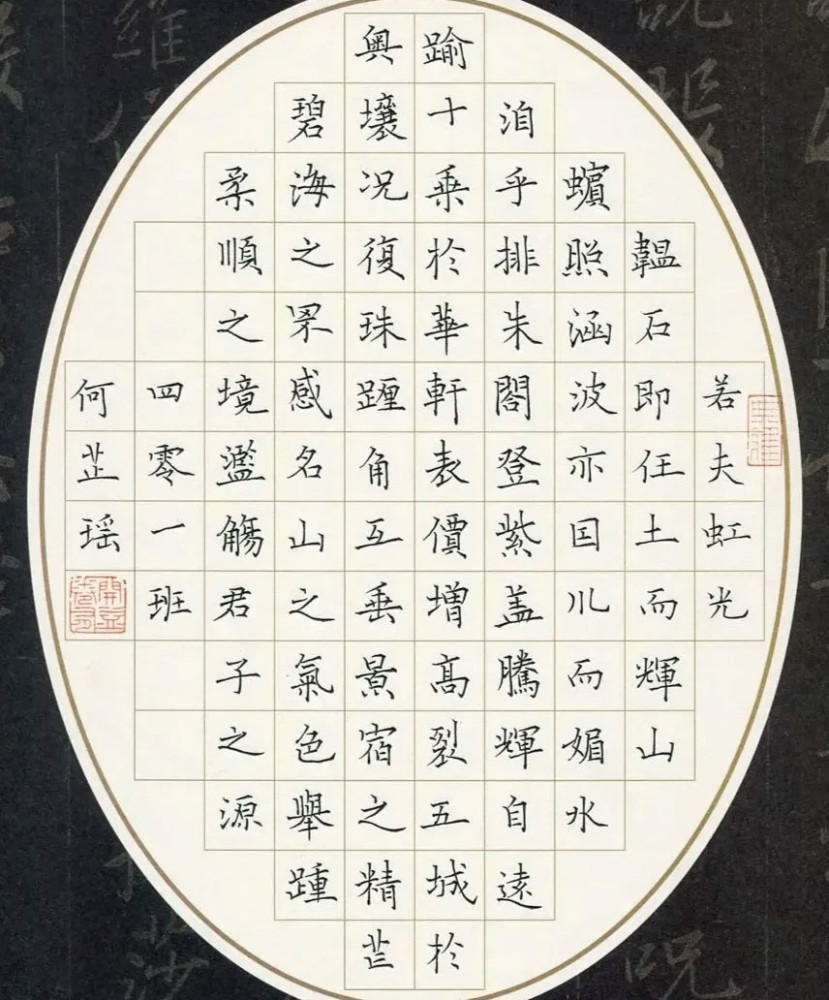 若夫虹光
韞石即任土而輝山
蠙照涵波亦因川而媚水
洎乎排朱閣登紫盖騰輝自遠
踰十乘於華軒表價增高裂五城於
奧壤况復珠躔角互垂景宿之精芒
碧海之罘感名山之氣色舉踵
柔順之境濫觴君子之源
四零一班
何芷瑶